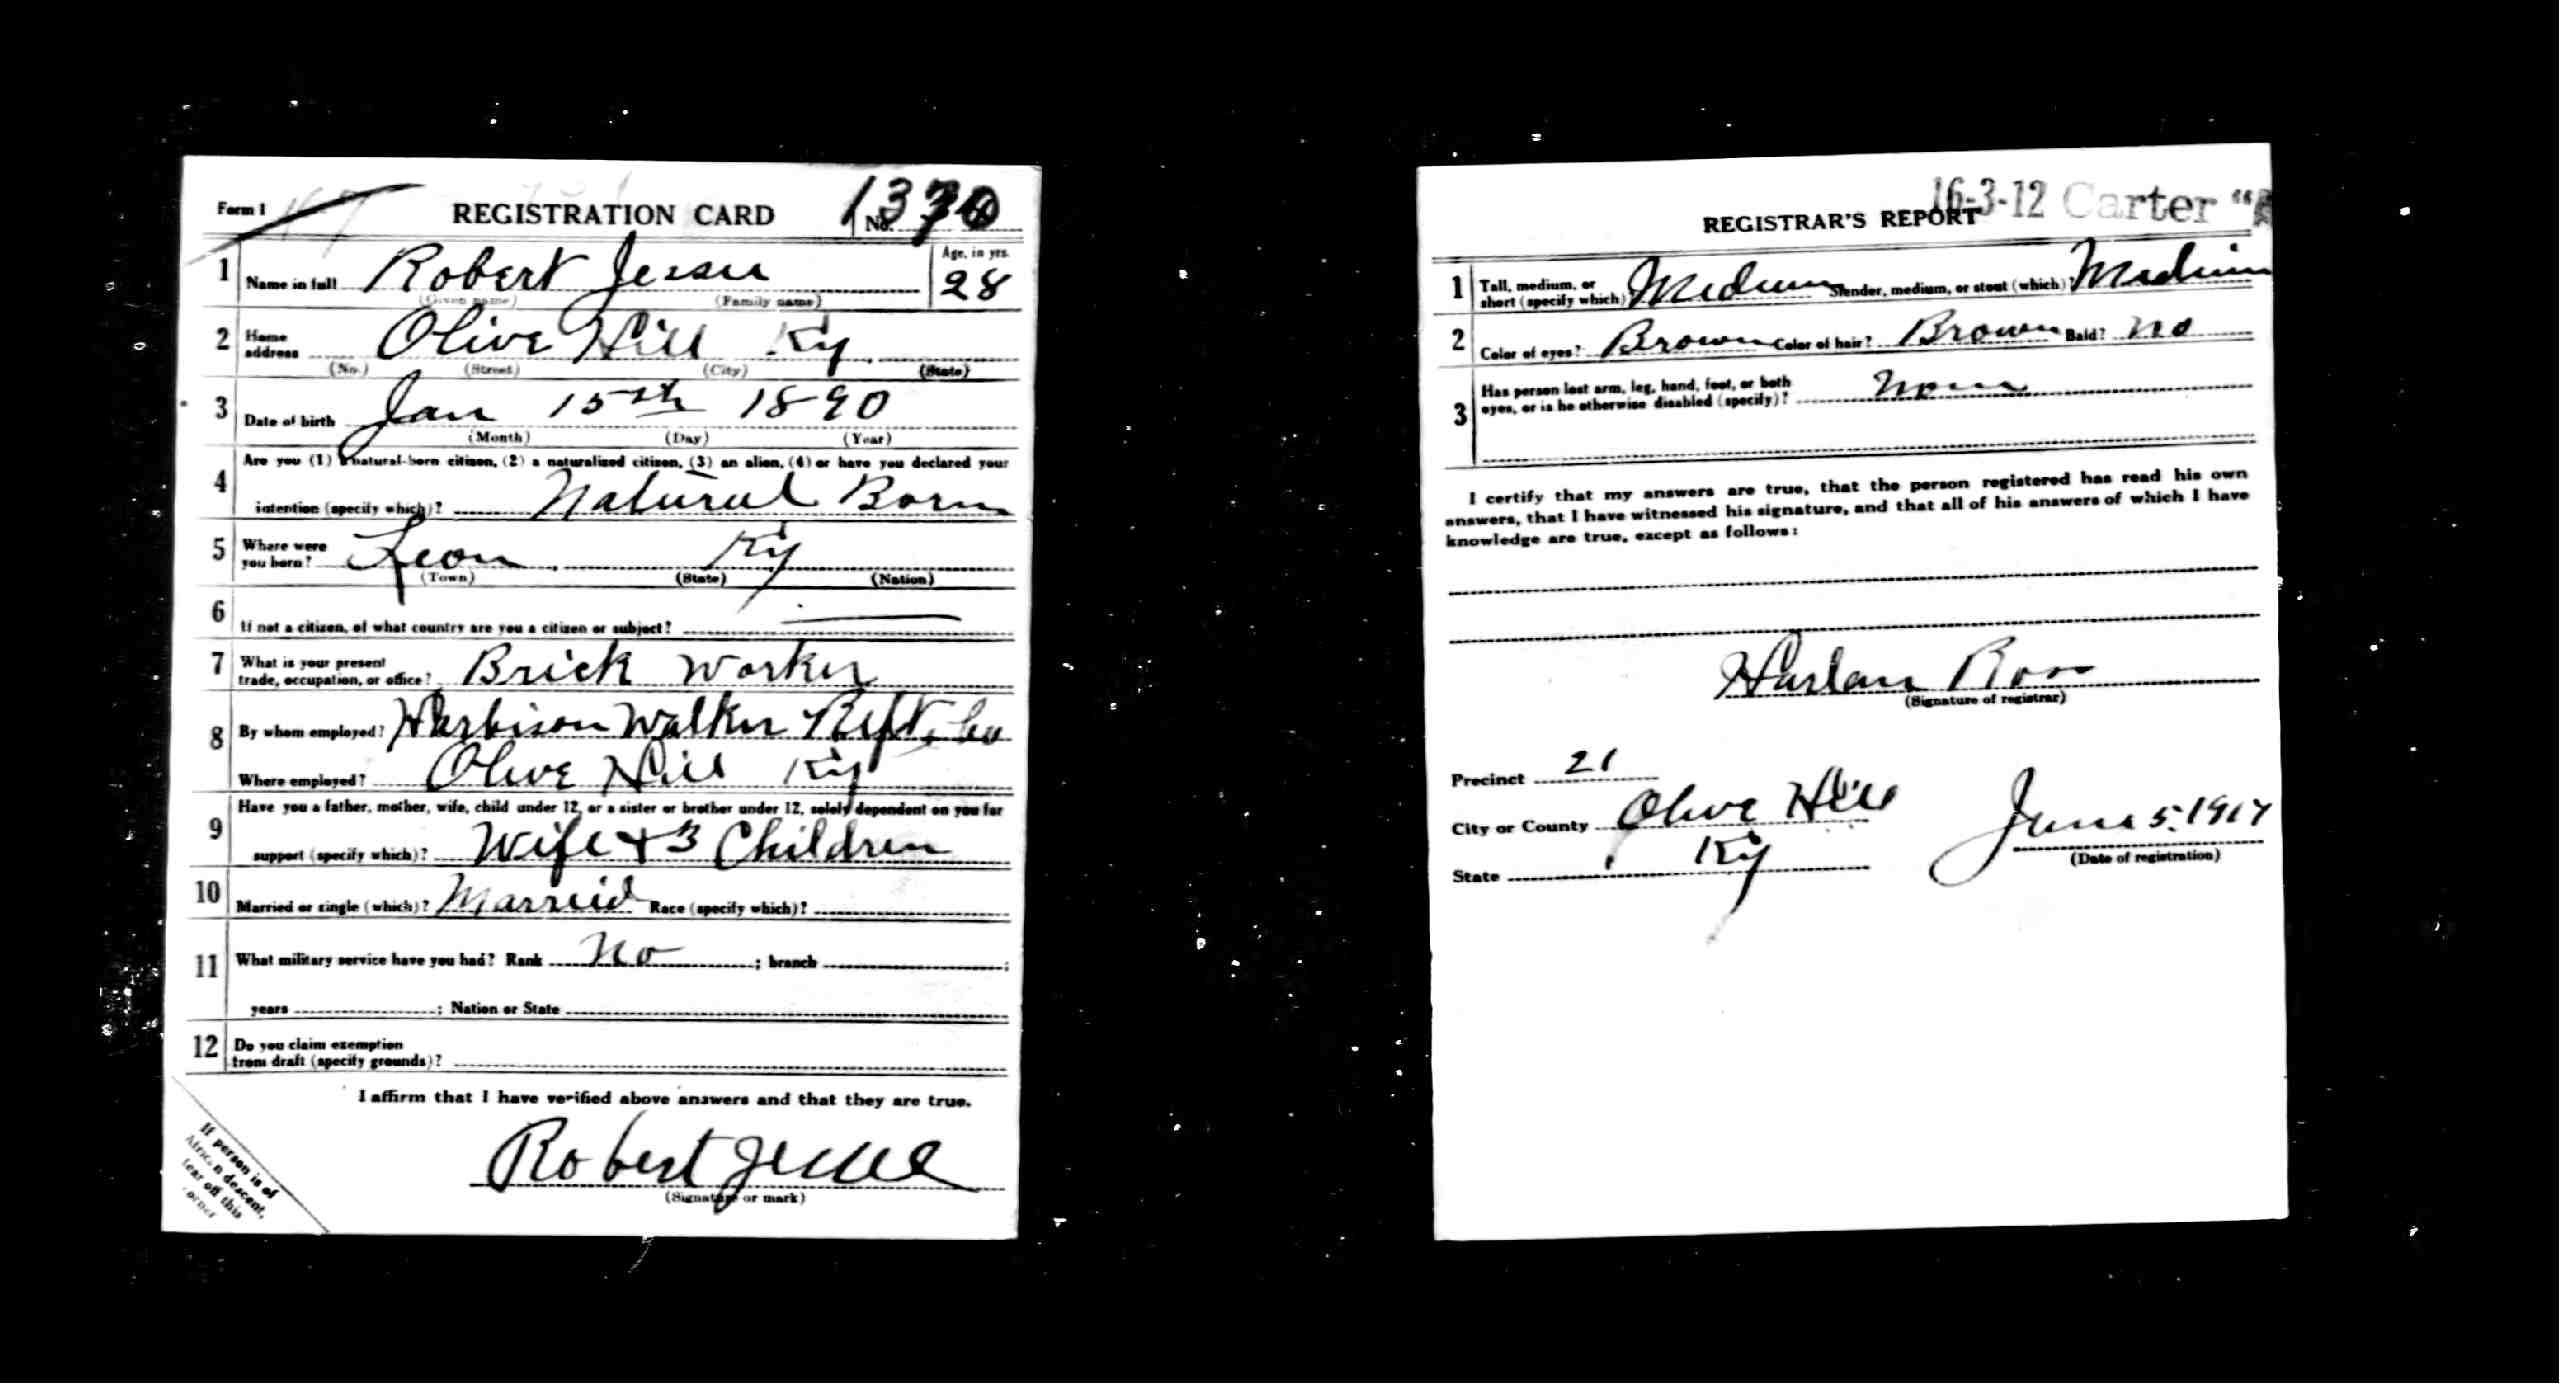 Form 1
REGISTRATION CARD
No.
1 Name in full Robert Jessee
(Given name) (Family name)
Age, in yrs.
28
2 Home address Olive Hill Ky.
(No.) (Street) (City) (State)
3 Date of birth Jan 15th 1890
(Month) (Day) (Year)
4 Are you (1) a natural-born citizen, (2) a naturalized citizen, (3) an alien, (4) or have you declared your
intention (specify which)? Natural Born
5 Where were you born? Leon, Ky
(Town) (State) (Nation)
6 If not a citizen, of what country are you a citizen or subject?
7 What is your present trade, occupation, or office? Brick Worker
8 By whom employed? Harbison Walker Reft. Co
Where employed? Olive Hill Ky
9 Have you a father, mother, wife, child under 12, or a sister or brother under 12, solely dependent on you for
support (specify which)? Wife + 3 Children
10 Married or single (which)? Married Race (specify which)?
11 What military service have you had? Rank No ; branch ;
years ; Nation or State
12 Do you claim exemption
from draft (specify grounds)?
I affirm that I have verified above answers and that they are true.
Robert Jessee
(Signature or mark)
If person is of
African descent,
tear off this
corner
16-3-12 Carter
REGISTRAR'S REPORT
1 Tall, medium, or short (specify which)? Medium Slender, medium, or stout (which)? Medium
2 Color of eyes? Brown Color of hair? Brown Bald? No
3 Has person lost arm, leg, hand, foot, or both
eyes, or is he otherwise disabled (specify)? None
I certify that my answers are true, that the person registered has read his own
answers, that I have witnessed his signature, and that all of his answers of which I have
knowledge are true, except as follows:
Harlan Ross
(Signature of registrar)
Precinct 21
City or County Olive Hill
State Ky
June 5, 1917
(Date of registration)